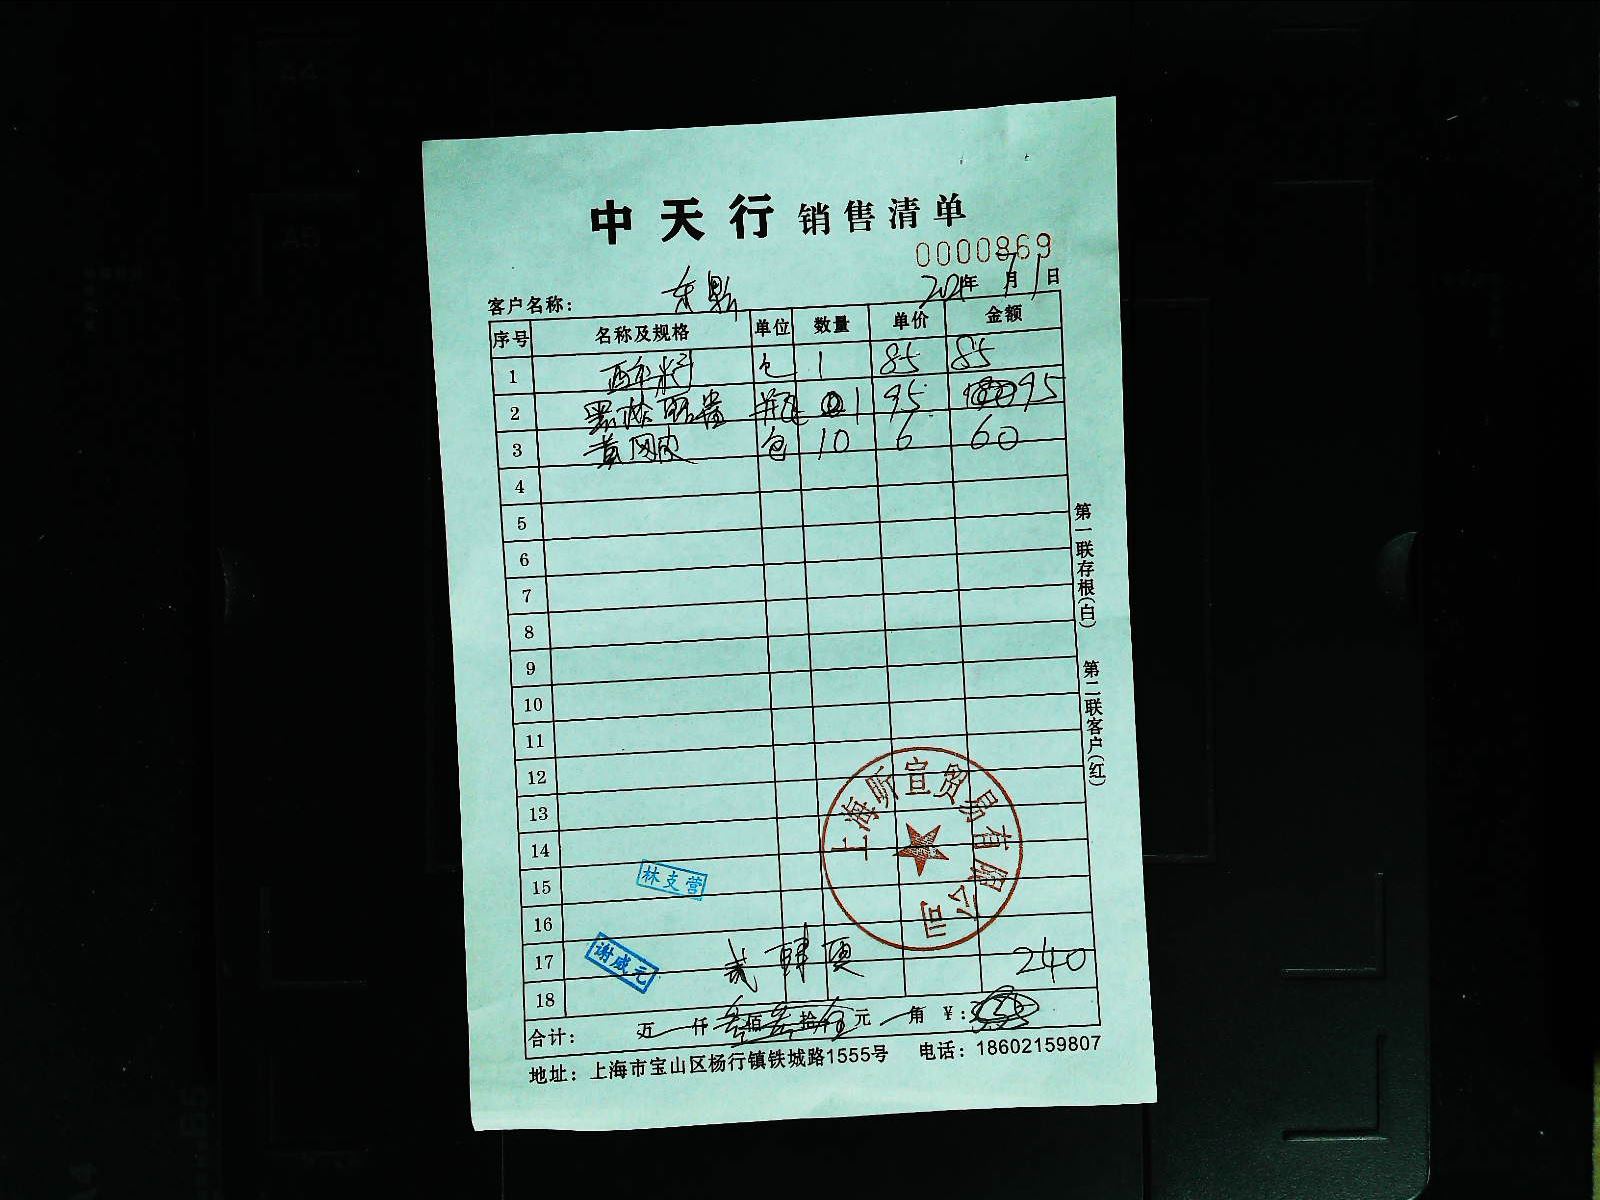 中天行 销售清单
0000869
客户名称： 年 7月1日
序号 名称及规格 单位 数量 单价 金额
1 包 1 85 85
2 黑松露酱 瓶 1 95 95
3 黄网皮 包 10 6 60
4
5
6
7
8
9
10
11
12
13
14
15
16
17 240
18
合计： 万 仟 佰 拾 元 角 ￥：
地址：上海市宝山区杨行镇铁城路1555号 电话：18602159807
第一联存根(白) 第二联客户(红)
上海昕宣贸易有限公司
林支营
谢咸元